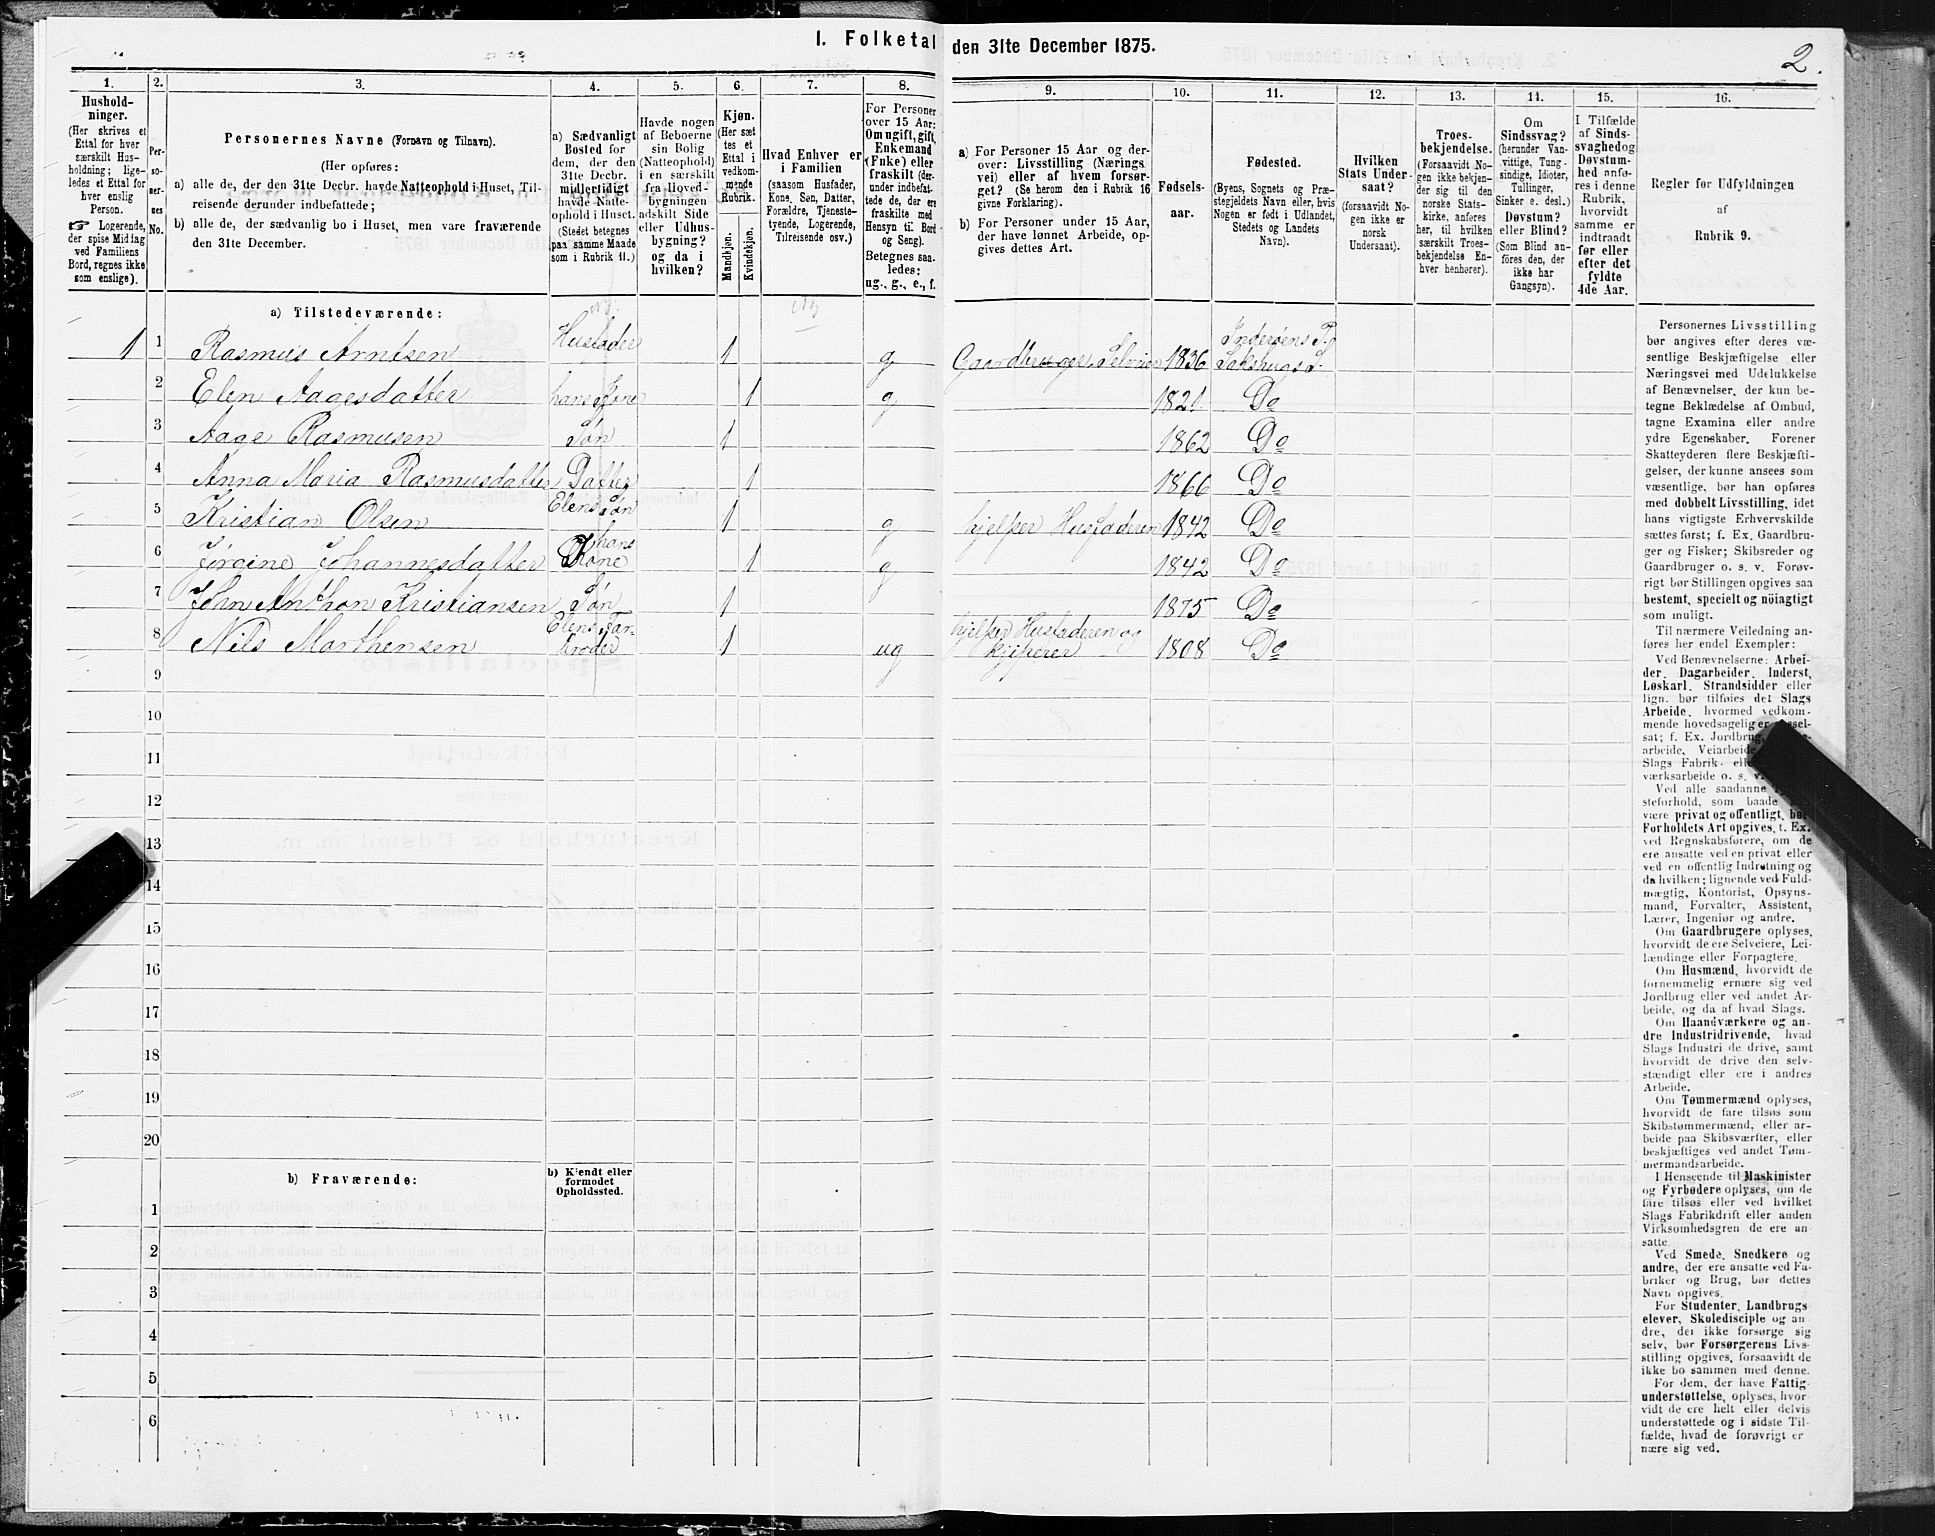 1. Folketal den 31te December 1875.
2.
1.
Hushold-
ninger.
(Her skrives et
Ettal for hver
særskilt Hus-
holdning; lige-
ledes et Ettal for
hver enslig
Person.
☞ Logerende,
der spise Middag
ved Familiens
Bord, regnes ikke
som enslige).
2.
Per-
so-
ner-
nes
No.
3.
Personernes Navne (Fornavn og Tilnavn).
(Her opføres:
a) alle de, der den 31te Decbr. havde Natteophold i Huset, Til-
reisende derunder indbefattede;
b) alle de, der sædvanlig bo i Huset, men vare fraværende
den 31te December.
4.
a) Sædvanligt
Bosted for
dem, der den
31te Decbr.
midlertidigt
havde Natte-
ophold i Huset.
(Stedet betegnes
paa samme Maade
som i Rubrik 11.)
5.
Havde nogen
af Beboerne
sin Bolig
(Natteophold)
i en særskilt
fra Hoved-
bygningen
adskilt Side
eller Udhus-
bygning?
og da i
hvilken?
6.
Kjøn.
(Her sæt
tes et
Ettal i
vedkom-
mende
Rubrik.
Mandkjøn.
Kvindekjøn.
7.
Hvad Enhver er
i Familien
(saasom Husfader,
Kone, Søn, Datter,
Forældre, Tjeneste-
tyende, Logerende,
Tilreisende osv.)
8.
For Personer
over 15 Aar:
Om ugift, gift,
Enkemand
(Enke) eller
fraskilt (der-
under indbefat-
tede de, der ere
fraskilte med
Hensyn til Bord
og Seng).
Betegnes saa-
ledes:
ug., g., e., f.
9.
a) For Personer 15 Aar og der-
over: Livsstilling (Nærings
vei) eller af hvem forsør-
get? (Se herom den i Rubrik 16
givne Forklaring).
b) For Personer under 15 Aar,
der have lønnet Arbeide, op-
gives dettes Art.
10.
Fødsels-
aar.
11.
Fødested.
(Byens, Sognets og Præ-
stegjeldets Navn eller, hvis
Nogen er født i Udlandet,
Stedets og Landets
Navn).
12.
Hvilken
Stats Under-
saat?
(forsaavidt No-
gen ikke er
norsk
Undersaat).
13.
Troes-
bekjendelse.
(Forsaavidt No-
gen ikke bekjen-
der sig til den
norske Stats-
kirke, anføres
her, til hvilken
særskilt Troes-
bekjendelse En-
hver henhører).
14.
Om
Sindssvag?
(herunder Van-
vittige, Tung-
sindige, Idioter,
Tullinger,
Sinker o. desl.)
Døvstum?
eller Blind?
(Som Blind an-
føres den, der
ikke har
Gangsyn).
15.
I Tilfælde
af Sinds-
svaghed og
Døvstum-
hed anfø-
res i denne
Rubrik,
hvorvidt
samme er
indtraadt
før eller
efter det
fyldte
4de Aar.
16.
Regler for Udfyldningen
af
Rubrik 9.
a) Tilstedeværende:
1 1 Rasmus Arntsen Husfader 1 g Gaardbruger, Selveier 1836 Inderøens P.
2 Elen Aagesdatter hans Kone 1 g 1821 Do
3 Aage Rasmusen Søn 1 1862 Do
4 Anna Maria Rasmusdatter Datter 1 1866 Do
5 Kristian Olsen Elens Søn 1 g hjelper Husfaderen 1842 Do
6 Jørgine Johannesdatter hans Kone 1 g 1842 Do
7 John Anthon Kristiansen Søn 1 1875 Do
8 Nils Morthensen Elens Far-
broder 1 ug hjelper Husfaderen og
1808 Do
9
10
11
12
13
14
15
16
17
18
19
20
b) Fraværende:
b) Kjendt eller
formodet
Opholdssted.
1
2
3
4
5
6
Personernes Livsstilling
bør angives efter deres væ-
sentlige Beskjæftigelse eller
Næringsvei med Udelukkelse
af Benævnelser, der kun be-
tegne Beklædelse af Ombud,
tagne Examina eller andre
ydre Egenskaber. Forener
Skatteyderen flere Beskjæfti-
gelser, der kunne ansees som
væsentlige, bør han opføres
med dobbelt Livsstilling, idet
hans vigtigste Erhvervskilde
sættes først; f. Ex. Gaardbru-
ger og Fisker; Skibsreder og
Gaardbruger o. s. v. Forøv-
rigt bør Stillingen opgives saa
bestemt, specielt og nöiagtigt
som muligt.
Til nærmere Veiledning an-
føres her endel Exempler:
Ved Benævnelserne: Arbei-
der, Dagarbeider, Inderst,
Løskarl, Strandsidder eller
lign. bør tilføies det Slags
Arbeide, hvormed vedkom-
mende hovedsagelig er syssel-
sat; f. Ex. Jordbrug,
arbeide, Veiarbeide
Slags Fabrik- ell
værksarbeide o. s. v.
Ved alle saadanne
steforhold, som baade
være privat og offentligt, bør
Forholdets Art opgives, t. Ex.
ved Regnskabsførere, om de
ere ansatte ved en privat eller
ved en offentlig Indretning og
da hvilken; lignende ved Fuld-
mægtig, Kontorist, Opsyns-
mand, Forvalter, Assistent,
Lærer, Ingeniør og andre.
Om Gaardbrugere oplyses,
hvorvidt de ere Selveiere, Lei-
lændinge eller Forpagtere.
Om Husmænd, hvorvidt de
fornemmelig ernære sig ved
Jordbrug eller ved andet Ar-
beide, og da af hvad Slags.
Om Haandværkere og an-
dre Industridrivende, hvad
Slags Industri de drive, samt
hvorvidt de drive den selv-
stændigt eller ere i andres
Arbeide.
Om Tømmermænd oplyses,
hvorvidt de fare tilsøs som
Skibstømmermænd, eller ar-
beide paa Skibsværfter, eller
beskjæftiges ved andet Tøm-
mermandsarbeide.
I Henseende til Maskinister
og Fyrbødere oplyses, om de
fare tilsøs eller ved hvilket
Slags Fabrikdrift eller anden
Virksomhedsgren de ere an-
satte.
Ved Smede, Snedkere og
andre, der ere ansatte ved Fa-
briker og Brug, bør dettes
Navn opgives.
For Studenter, Landbrugs
elever, Skoledisciple og an
dre, der ikke forsørge sig
selv, bør Forsørgerens Livs-
stilling opgives, forsaavidt de
ikke bo sammen med denne.
For dem, der have Fattig-
understøttelse, oplyses, hvor-
vidt de ere helt eller delvis
understøttede og i sidste Til-
fælde, hvad de forøvrigt er
nære sig ved.